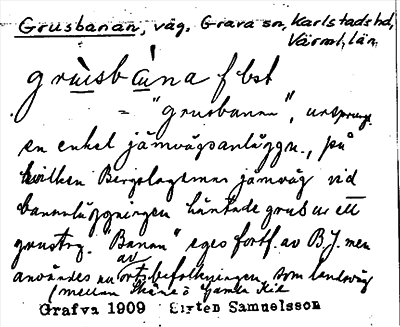 Grusbanan, väg. Grava sn, Karlstads hd,
Värml. län
grùsbána f bst
= "grusbanan", ursprungl.
en enkel järnvägsanläggn., på
hvilken Bergslagernas järnväg vid
bananläggningen hämtade grus ur ett
grustag. "Banan" eges fortf. av B.J. men
användes nu av ortsbefolkningen som landsväg
(mellan Skåre o Gamla Kil
Grafva 1909 Sixten Samuelsson